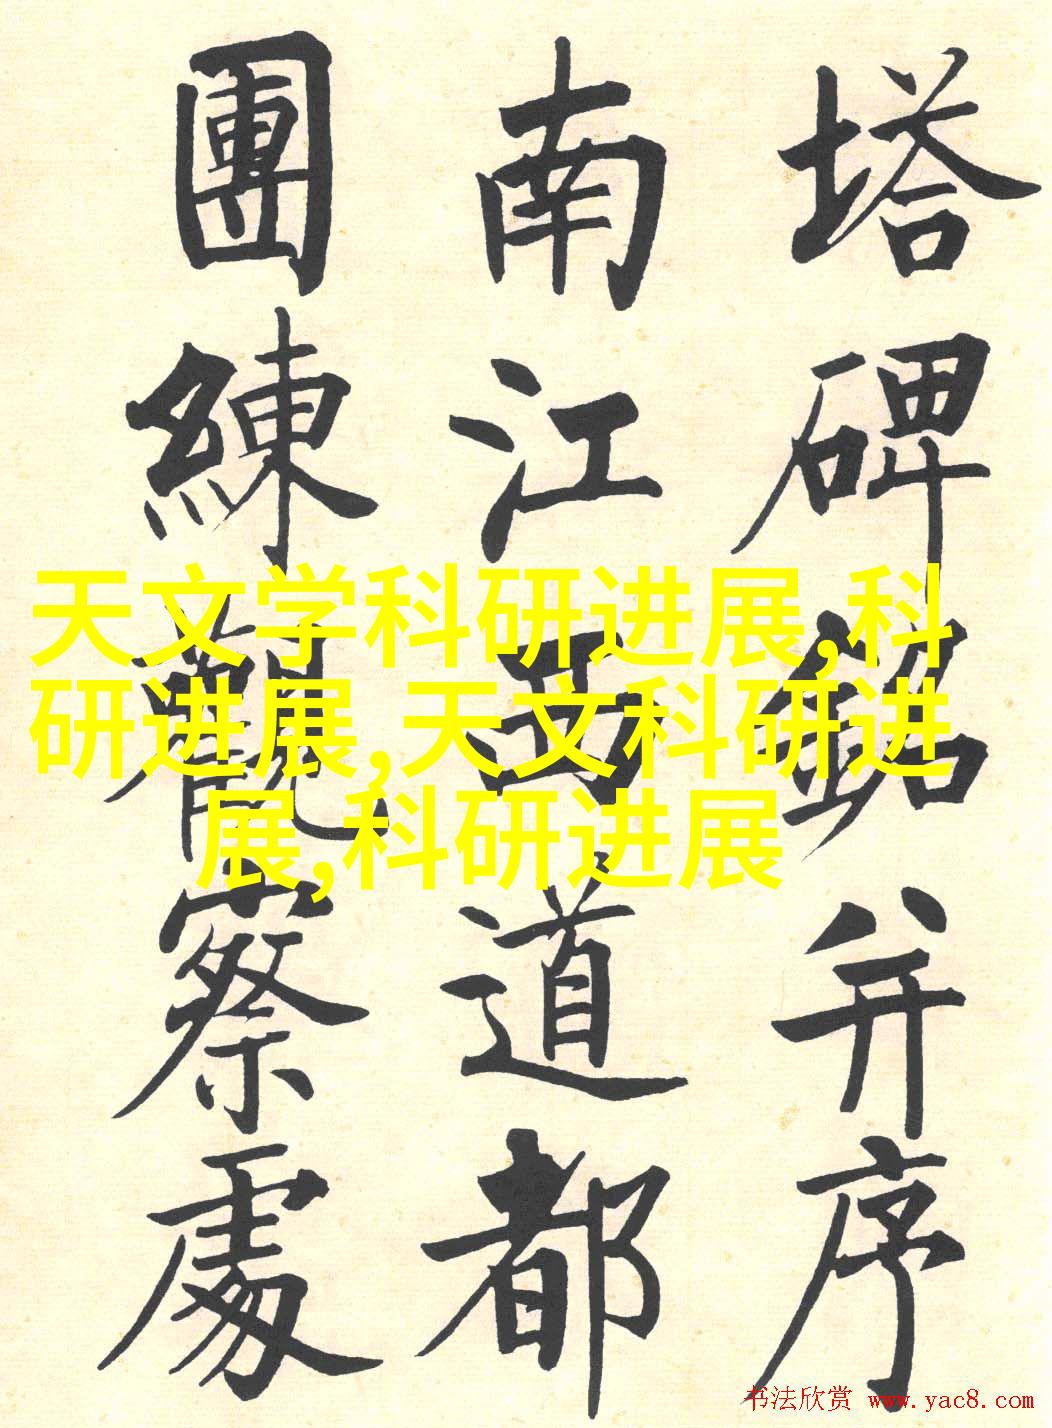 塔碑銘并序
南江西道都
團練觀察處
天文学科研进展,科
研进展,天文科研进
展,科研进展
书法欣赏 www.yac8.com